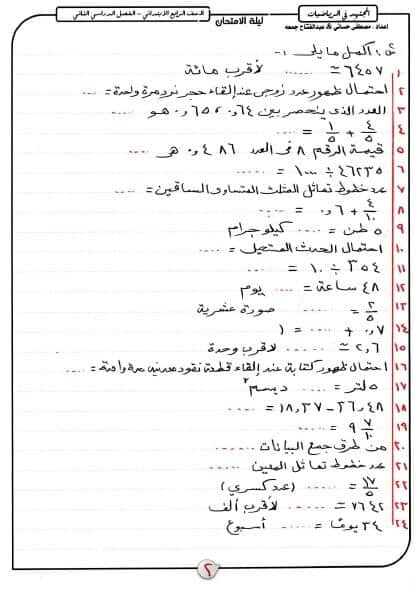 المجتهد في الرياضيات
اعداد : مصطفى حساني & عبدالفتاح جمعه
ليلة الامتحان
الصف الرابع الابتدائي - الفصل الدراسي الثاني
س١ : أكمل ما يلى :-
١ ٦٤٥٧ ≃ ...... لأقرب مائة
٢ احتمال ظهور عدد زوجى عند إلقاء حجر نرد مرة واحدة = ....
٣ العدد الذى ينحصر بين ٠,٦٤ ، ٠,٦٥ هو ....
٤ ٤/٥ + ١/٥ = ....
٥ قيمة الرقم ٨ فى العدد ٠,٤٨٦ هى ....
٦ ٤٦٢٣٥ ÷ ١٠٠٠ = ......
٧ عدد خطوط تماثل المثلث المتساوى الساقين = ....
٨ ٤/١٠ + ٠,٦ = ......
٩ ٥ طن = ..... كيلوجرام
١٠ احتمال الحدث المستحيل = ....
١١ ٣٥٤ ÷ ١٠ = ....
١٢ ٤٨ ساعة = ..... يوم
١٣ ٢/٥ = ...... صورة عشرية
١٤ ٠,٧ + ..... = ١
١٥ ٢,٦ ≃ ...... لأقرب وحدة
١٦ احتمال ظهور كتابة عند إلقاء قطعة نقود معدنية مرة واحدة = ....
١٧ ٥ لتر = ..... ديسم٣
١٨ ٢٦,٤٨ - ١٨,٣٧ = ......
١٩ ٩ ٧/١٠ = ....
٢٠ من طرق جمع البيانات ......
٢١ عدد خطوط تماثل المعين ....
٢٢ ١٧/٥ = ...... (عدد كسري)
٢٣ ٧٦٤٢ ≃ ...... لأقرب ألف
٢٤ ٢٤ يومًا = ..... أسبوع
٢